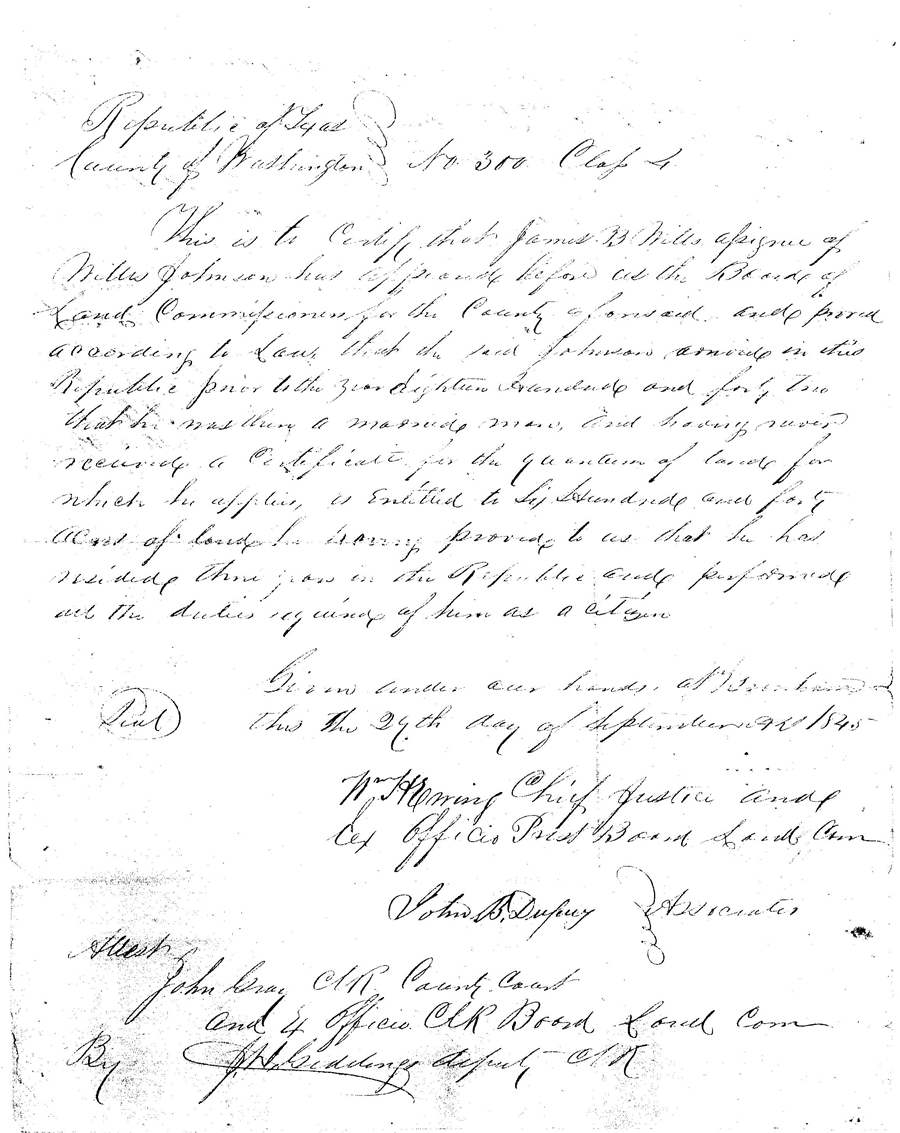 Republic of Texas
County of Washington No 300 Class 4
This is to Certify that James B Wills assignee of
Willis Johnson has appeared before us the Board of
Land Commissioners for the County aforesaid and proved
according to Law, that the said Johnson arrived in this
Republic prior to the year Eighteen Hundred and forty two
that he was then a married man, and having never
received a Certificate for the quantum of land for
which he applies, is Entitled to Six Hundred and forty
acres of land he having proved to us that he has
resided three years in the Republic and performed
all the duties required of him as a citizen
Given under our hands, at Brenham
Seal this the 29th day of September AD 1845
Wm H Ewing Chief Justice and
Ex Officio Prest Board Land Com
John B. Dupuy Associates
Attest
John Gray Clk County Court
and Ex Officio Clk Board Land Com
By J. D. Giddings deputy Clk